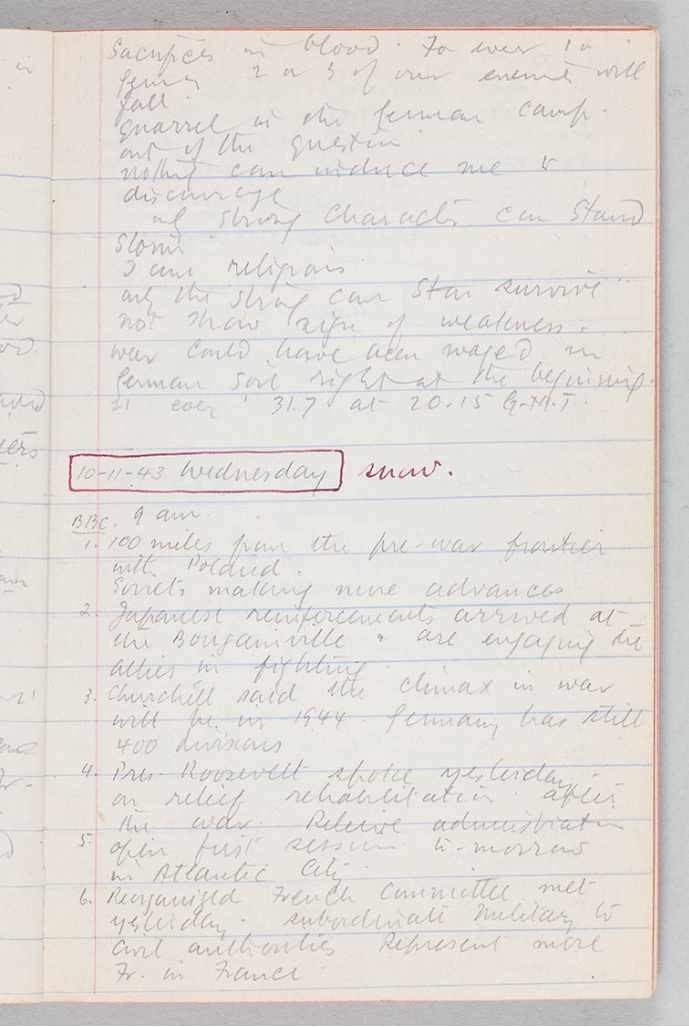 Sacrifices in blood. For ever 10
2 or 3 of our enemies will
fall.
quarrel in the German camp.
out of the question
nothing can induce me to
discourage
only strong character can stand
storm
I am religious
only the strong can survive
not show sign of weakness.
war could have been waged on
German soil right at the beginning.
31.7 at 20.15 G.M.T.
10-11-43 Wednesday snow.
BBC. 9 am.
1. 100 miles from the pre-war frontier
with Poland.
Soviets making more advances
2. Japanese reinforcements arrived at
the Bougainville & are engaging the
allies in fighting
3. Churchill said the climax in war
will be in 1944. Germany has still
400 divisions
4. Pres. Roosevelt spoke yesterday
on relief rehabilitation after
the war. administration
5. open first session to-morrow
in Atlantic City
6. Reorganised French Committee met
yesterday. subordinate military to
civil authorities Represent more
Fr. in France